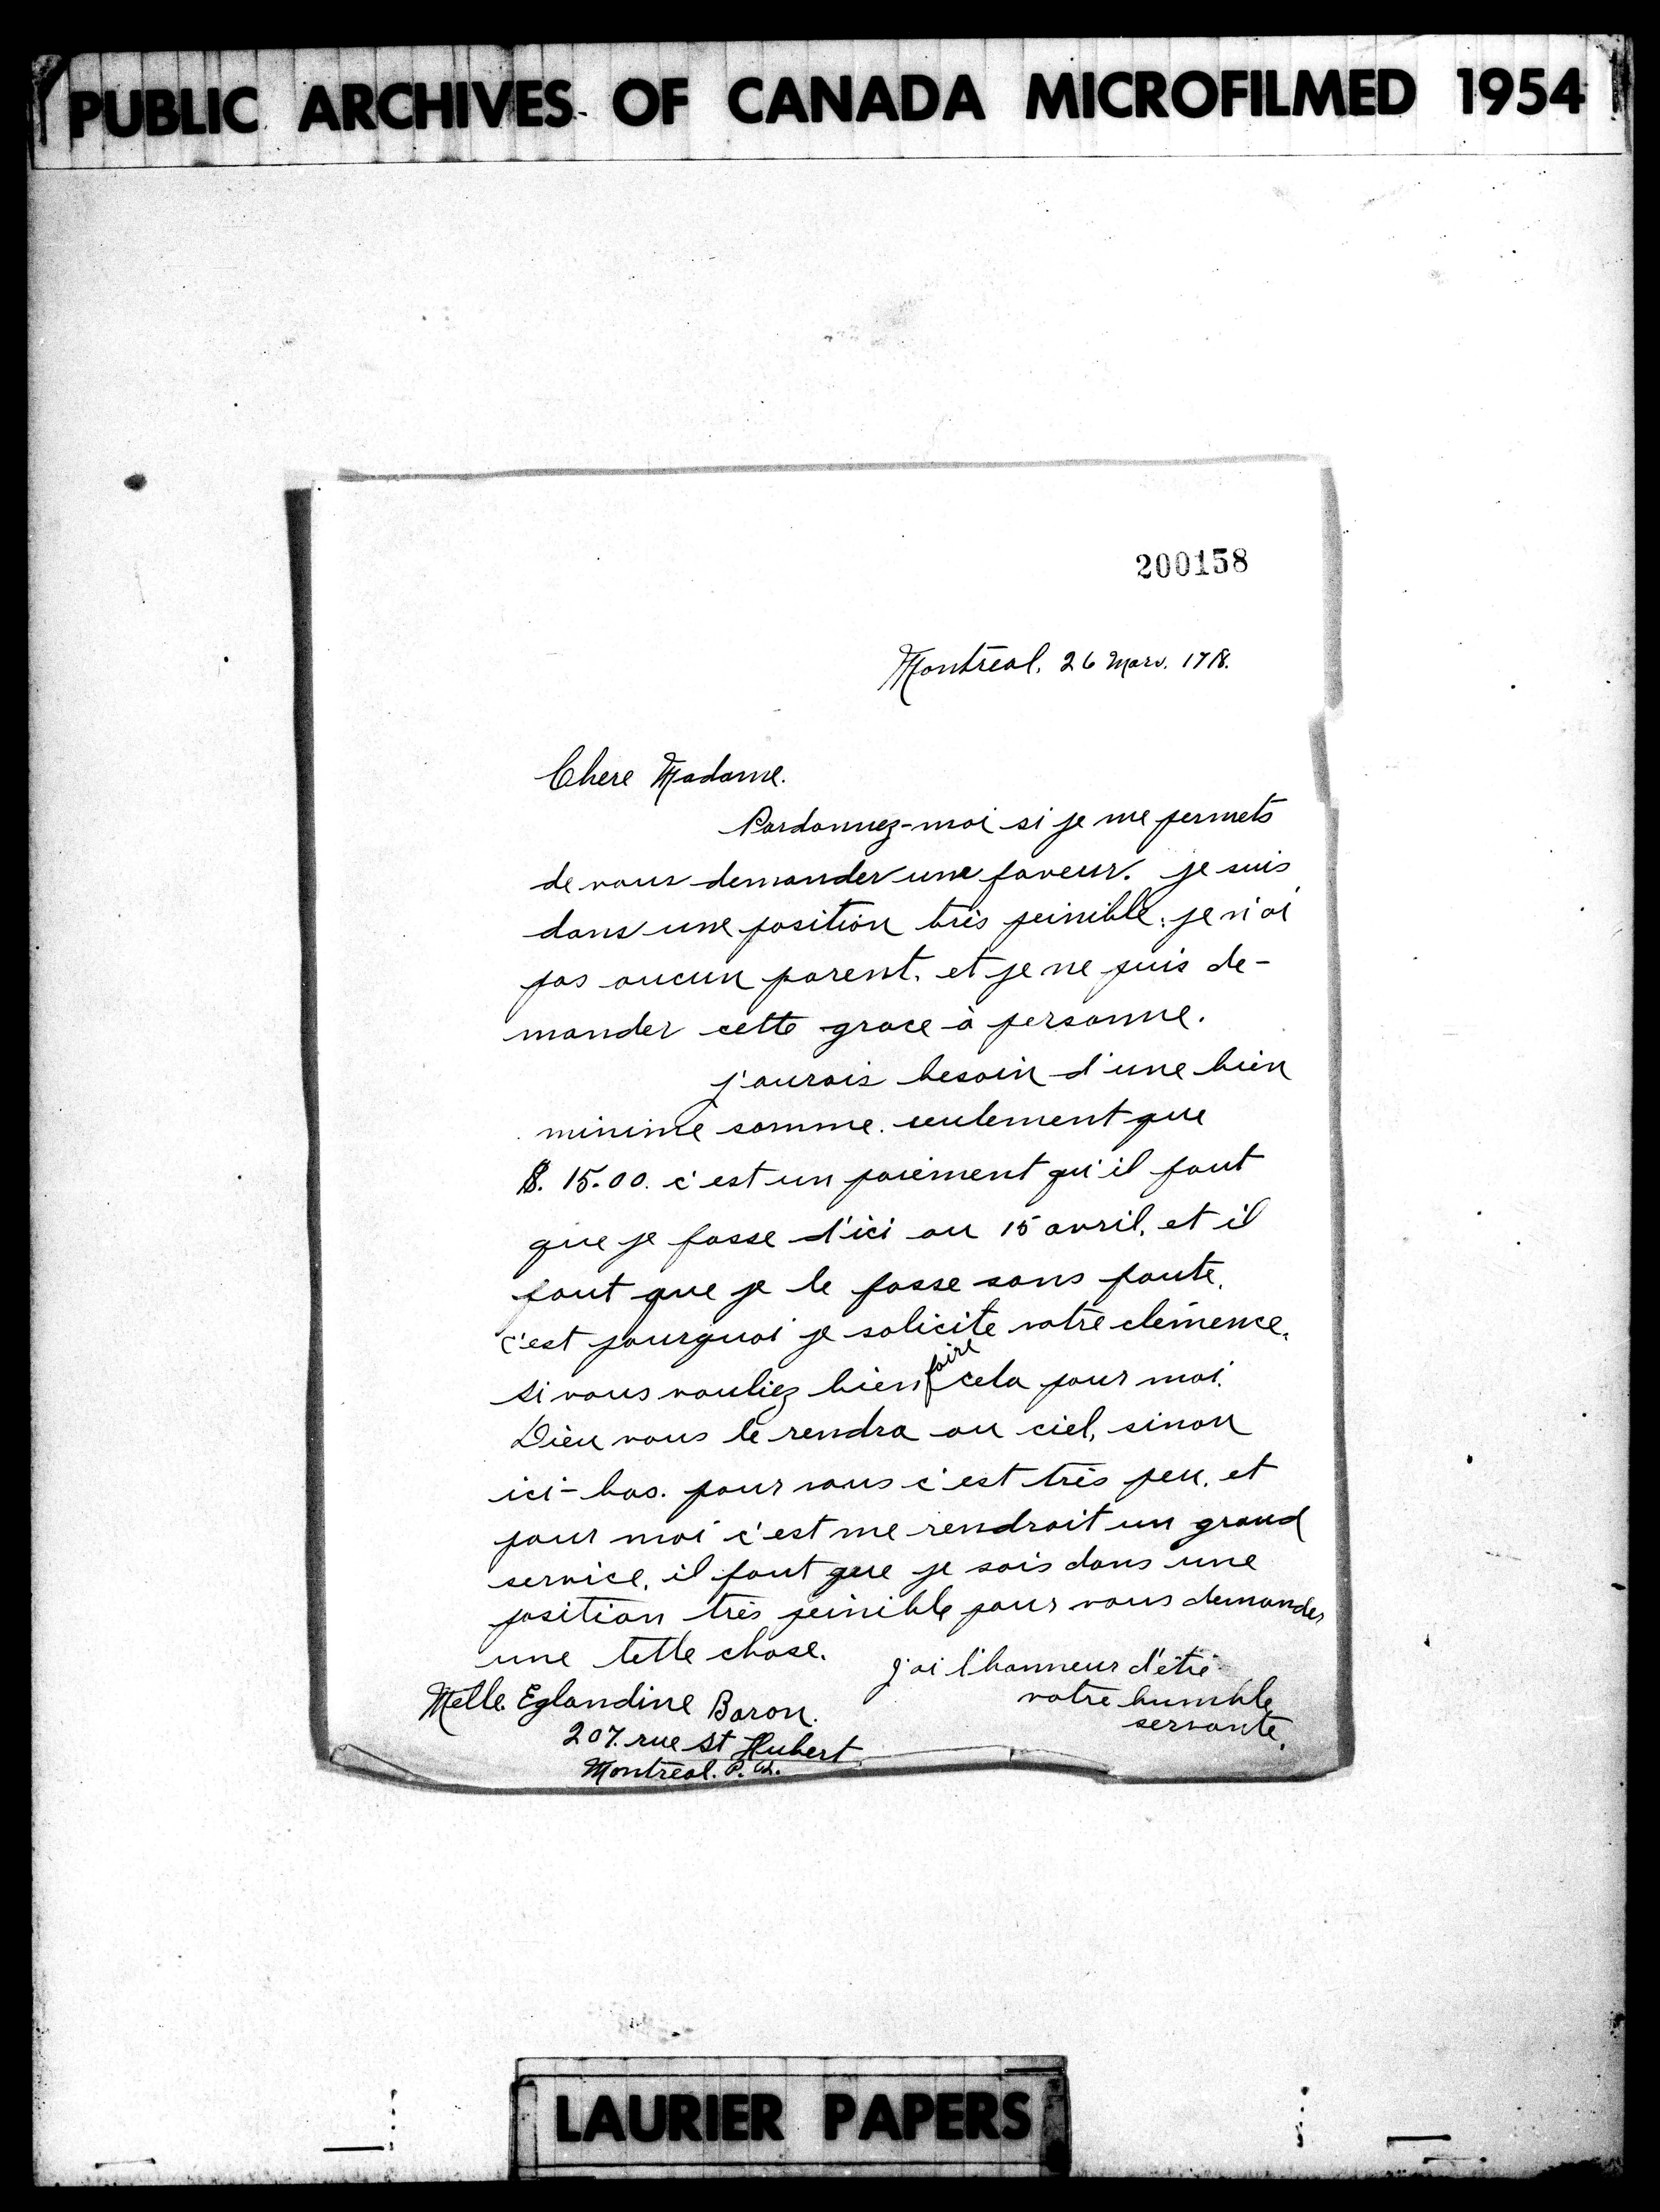 PUBLIC ARCHIVES OF CANADA MICROFILMED 1954
200158
Montréal, 26 Mars. 1918.
Chere Madame.
Pardonnez-moi si je me permets
de vous demander une faveur. je suis
dans une position très peinible. je n'ai
pas aucun parent. et je ne puis de-
mander cette grace à personne.
j'aurais besoin d'une bien
minime somme. seulement que
$. 15.00. c'est un paiement qu'il faut
que je fasse d'ici au 15 avril, et il
faut que je le fasse sans faute.
c'est pourquoi je solicite votre clémence.
si vous vouliez bien faire cela pour moi.
Dieu vous le rendra au ciel, sinon
ici-bas. pour vous c'est très peu, et
pour moi c'est me rendrait un grand
service, il faut que je sois dans une
position très peinible pour vous demander
une telle chose. j'ai l'honneur d'être
votre humble
servante.
Melle. Eglandine Baron.
207. rue St Hubert
Montréal. P. Q.
LAURIER PAPERS